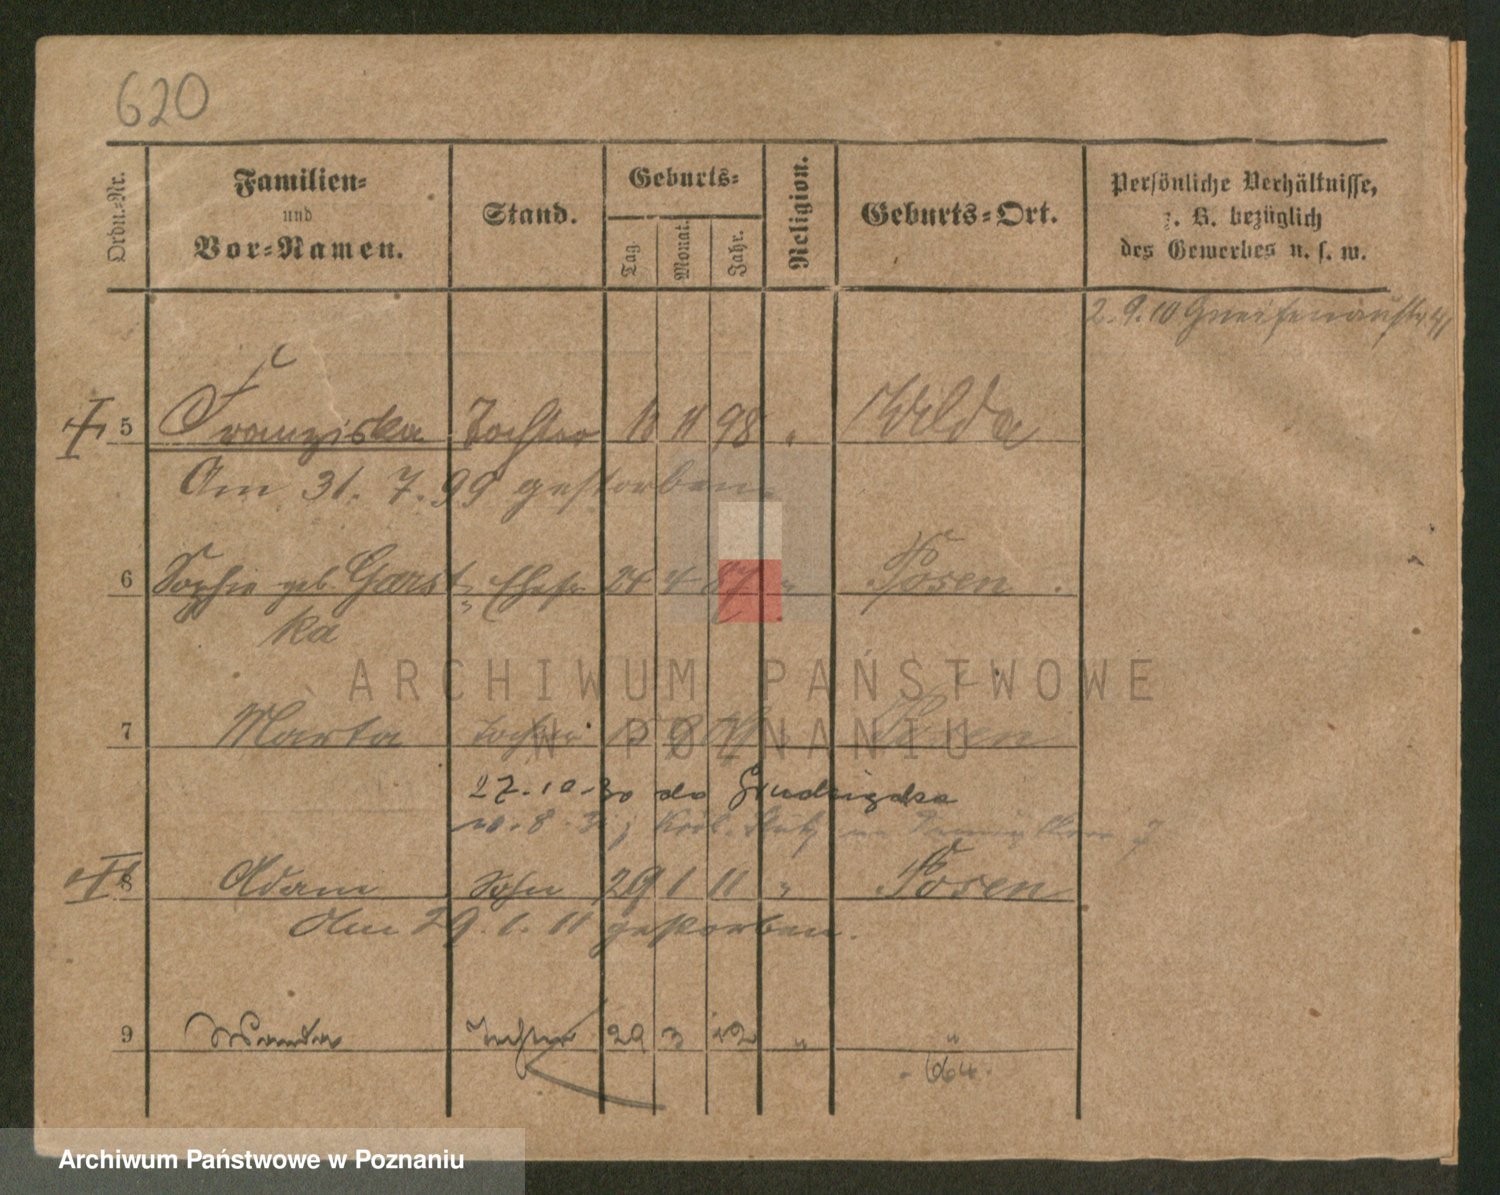 620
Ordn.-Nr.
Familien-
und
Vor-Namen.
Stand.
Geburts-
Tag
Monat.
Jahr.
Religion.
Geburts-Ort.
Persönliche Verhältnisse,
z. B. bezüglich
des Gewerbes u. s. w.
2.9.10 Gneisenaustr.
5 Franziska Tochter 10 11 98 " Wilda
Am 31. 7. 99 gestorben.
6 Sophie geb. Garst Ehefr 24 4 87 " Posen
ka
7 Marta Tochter 9 " Posen
27.10.30 do Grudziądza
8 Adam Sohn 29 1 11 " Posen
Am 29. 1. 11 gestorben.
9 Wanda Tochter 29 3 12 " "
664.
ARCHIWUM PAŃSTWOWE
W POZNANIU
Archiwum Państwowe w Poznaniu